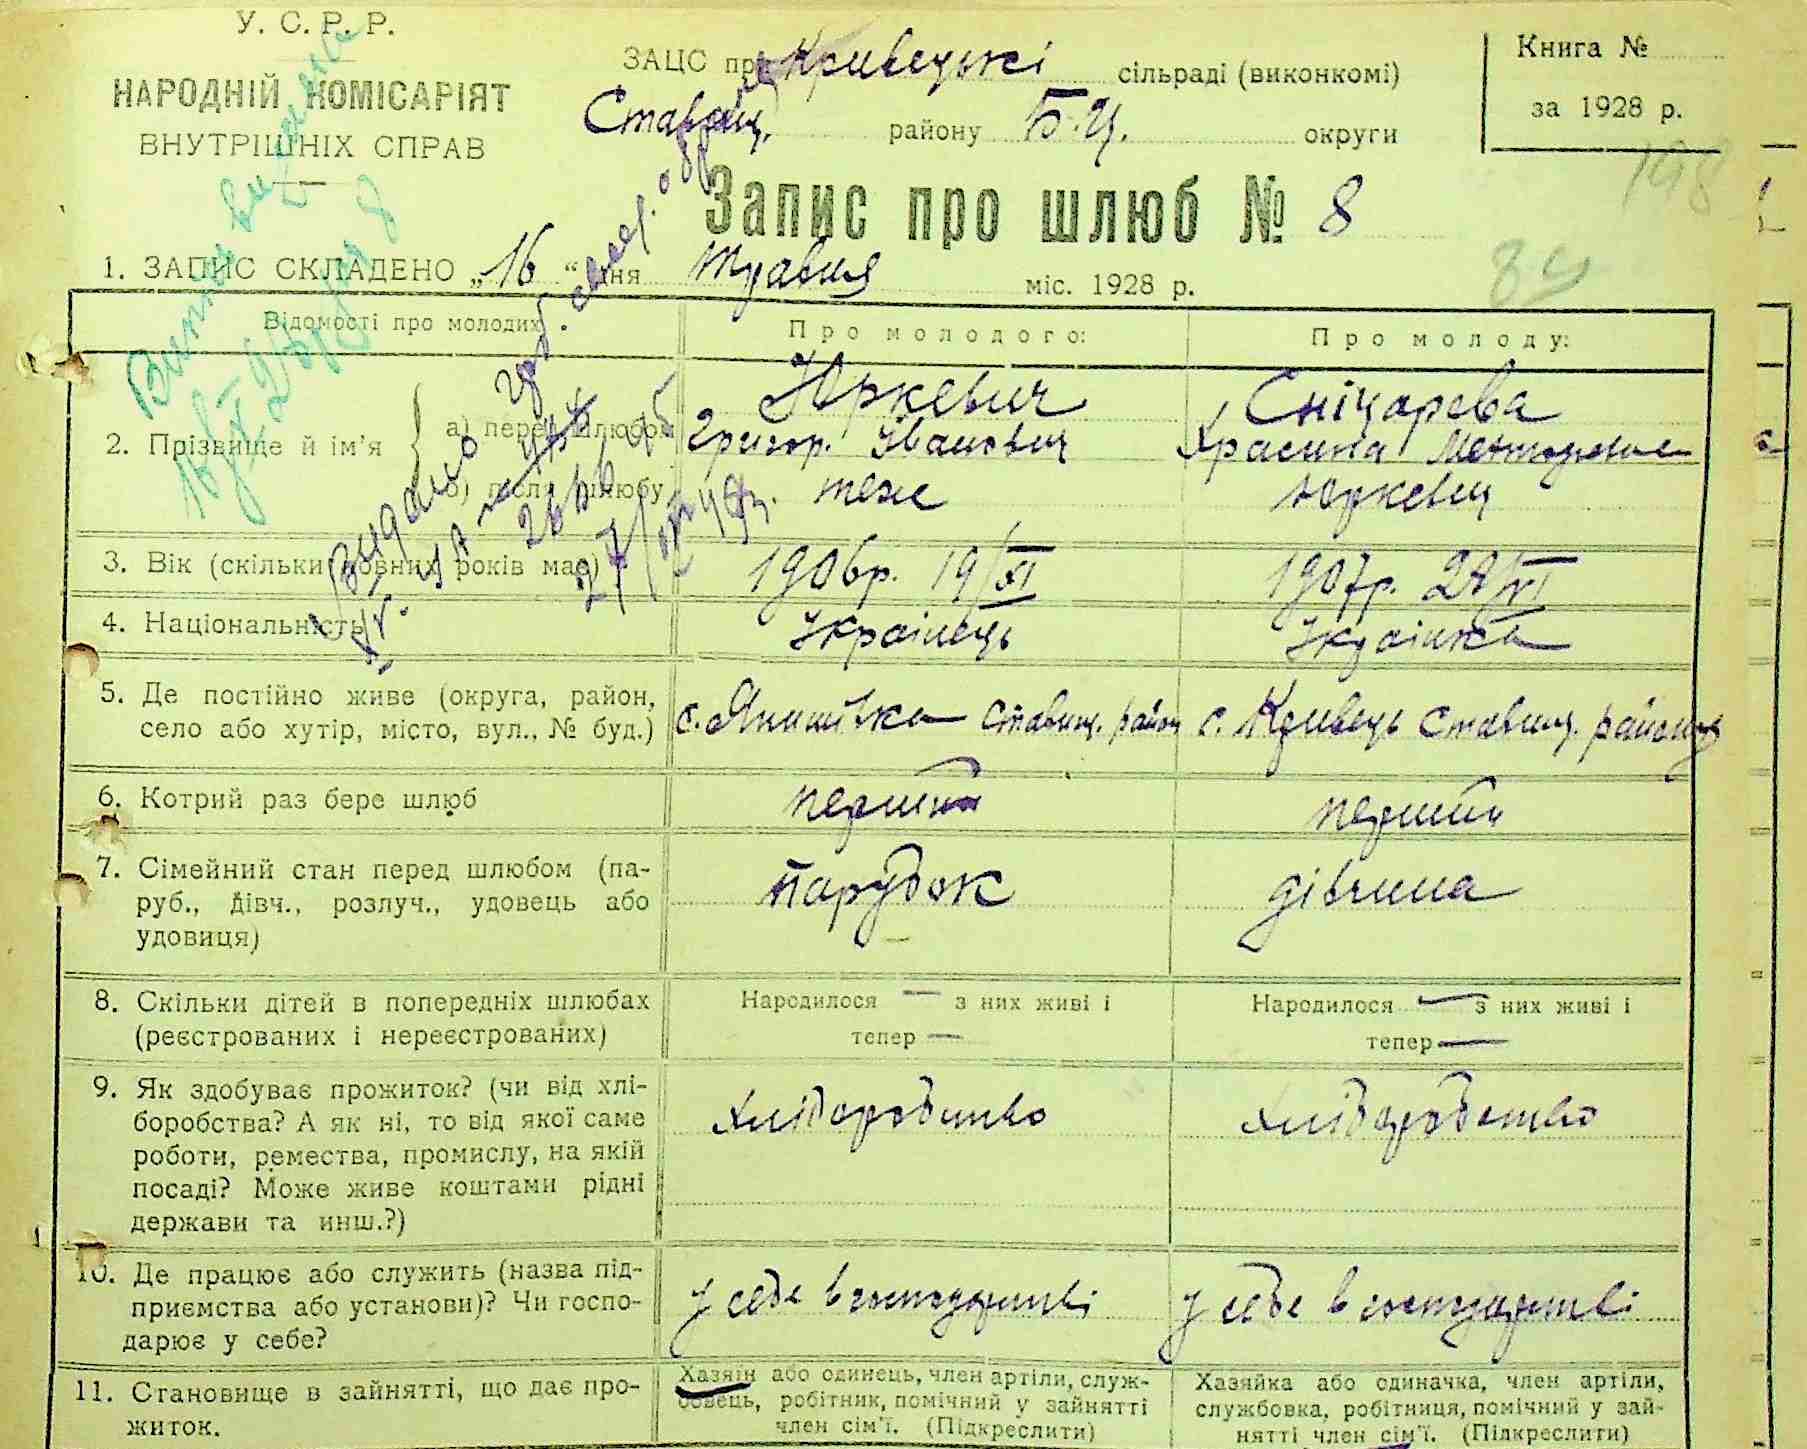 У. С. Р. Р.
НАРОДНІЙ КОМІСАРІЯТ
ВНУТРІШНІХ СПРАВ
ЗАЦС при Кривецькі сільраді (виконкомі)
Ставищ. району Б.Ц. округи
Книга №
за 1928 р.
198
Запис про шлюб № 8
84
1. ЗАПИС СКЛАДЕНО „16“ дня травня міс. 1928 р.
Відомості про молодих. Про молодого: Про молоду:
2. Прізвище й ім’я
а) перед шлюбом
Юркевич
Григор. Іванович
Сніцарева
б) після шлюбу
теж
Юркевич
3. Вік (скільки повних років має) 1906р. 19/XI 1907р. 28/VI
4. Національність Українець Українка
5. Де постійно живе (округа, район,
село або хутір, місто, вул., № буд.)
с. Янишівка Ставищ. район
с. Кривець Ставищ. району
6. Котрий раз бере шлюб перший перший
7. Сімейний стан перед шлюбом (па-
руб., дівч., розлуч., удовець або
удовиця)
парубок
дівчина
8. Скільки дітей в попередніх шлюбах
(реєстрованих і нереєстрованих)
Народилося — з них живі і
тепер —
Народилося — з них живі і
тепер —
9. Як здобуває прожиток? (чи від хлі-
боробства? А як ні, то від якої саме
роботи, ремества, промислу, на якій
посаді? Може живе коштами рідні
держави та инш.?)
хліборобство
хліборобство
10. Де працює або служить (назва під-
приємства або установи)? Чи госпо-
дарює у себе?
у себе в господарстві
у себе в господарстві
11. Становище в зайнятті, що дає про-
житок.
Хазяїн або одинець, член артіли, служ-
бовець, робітник, помічний у зайнятті
член сім’ї. (Підкреслити)
Хазяйка або одиначка, член артіли,
службовка, робітниця, помічний у зай-
нятті член сім’ї. (Підкреслити)